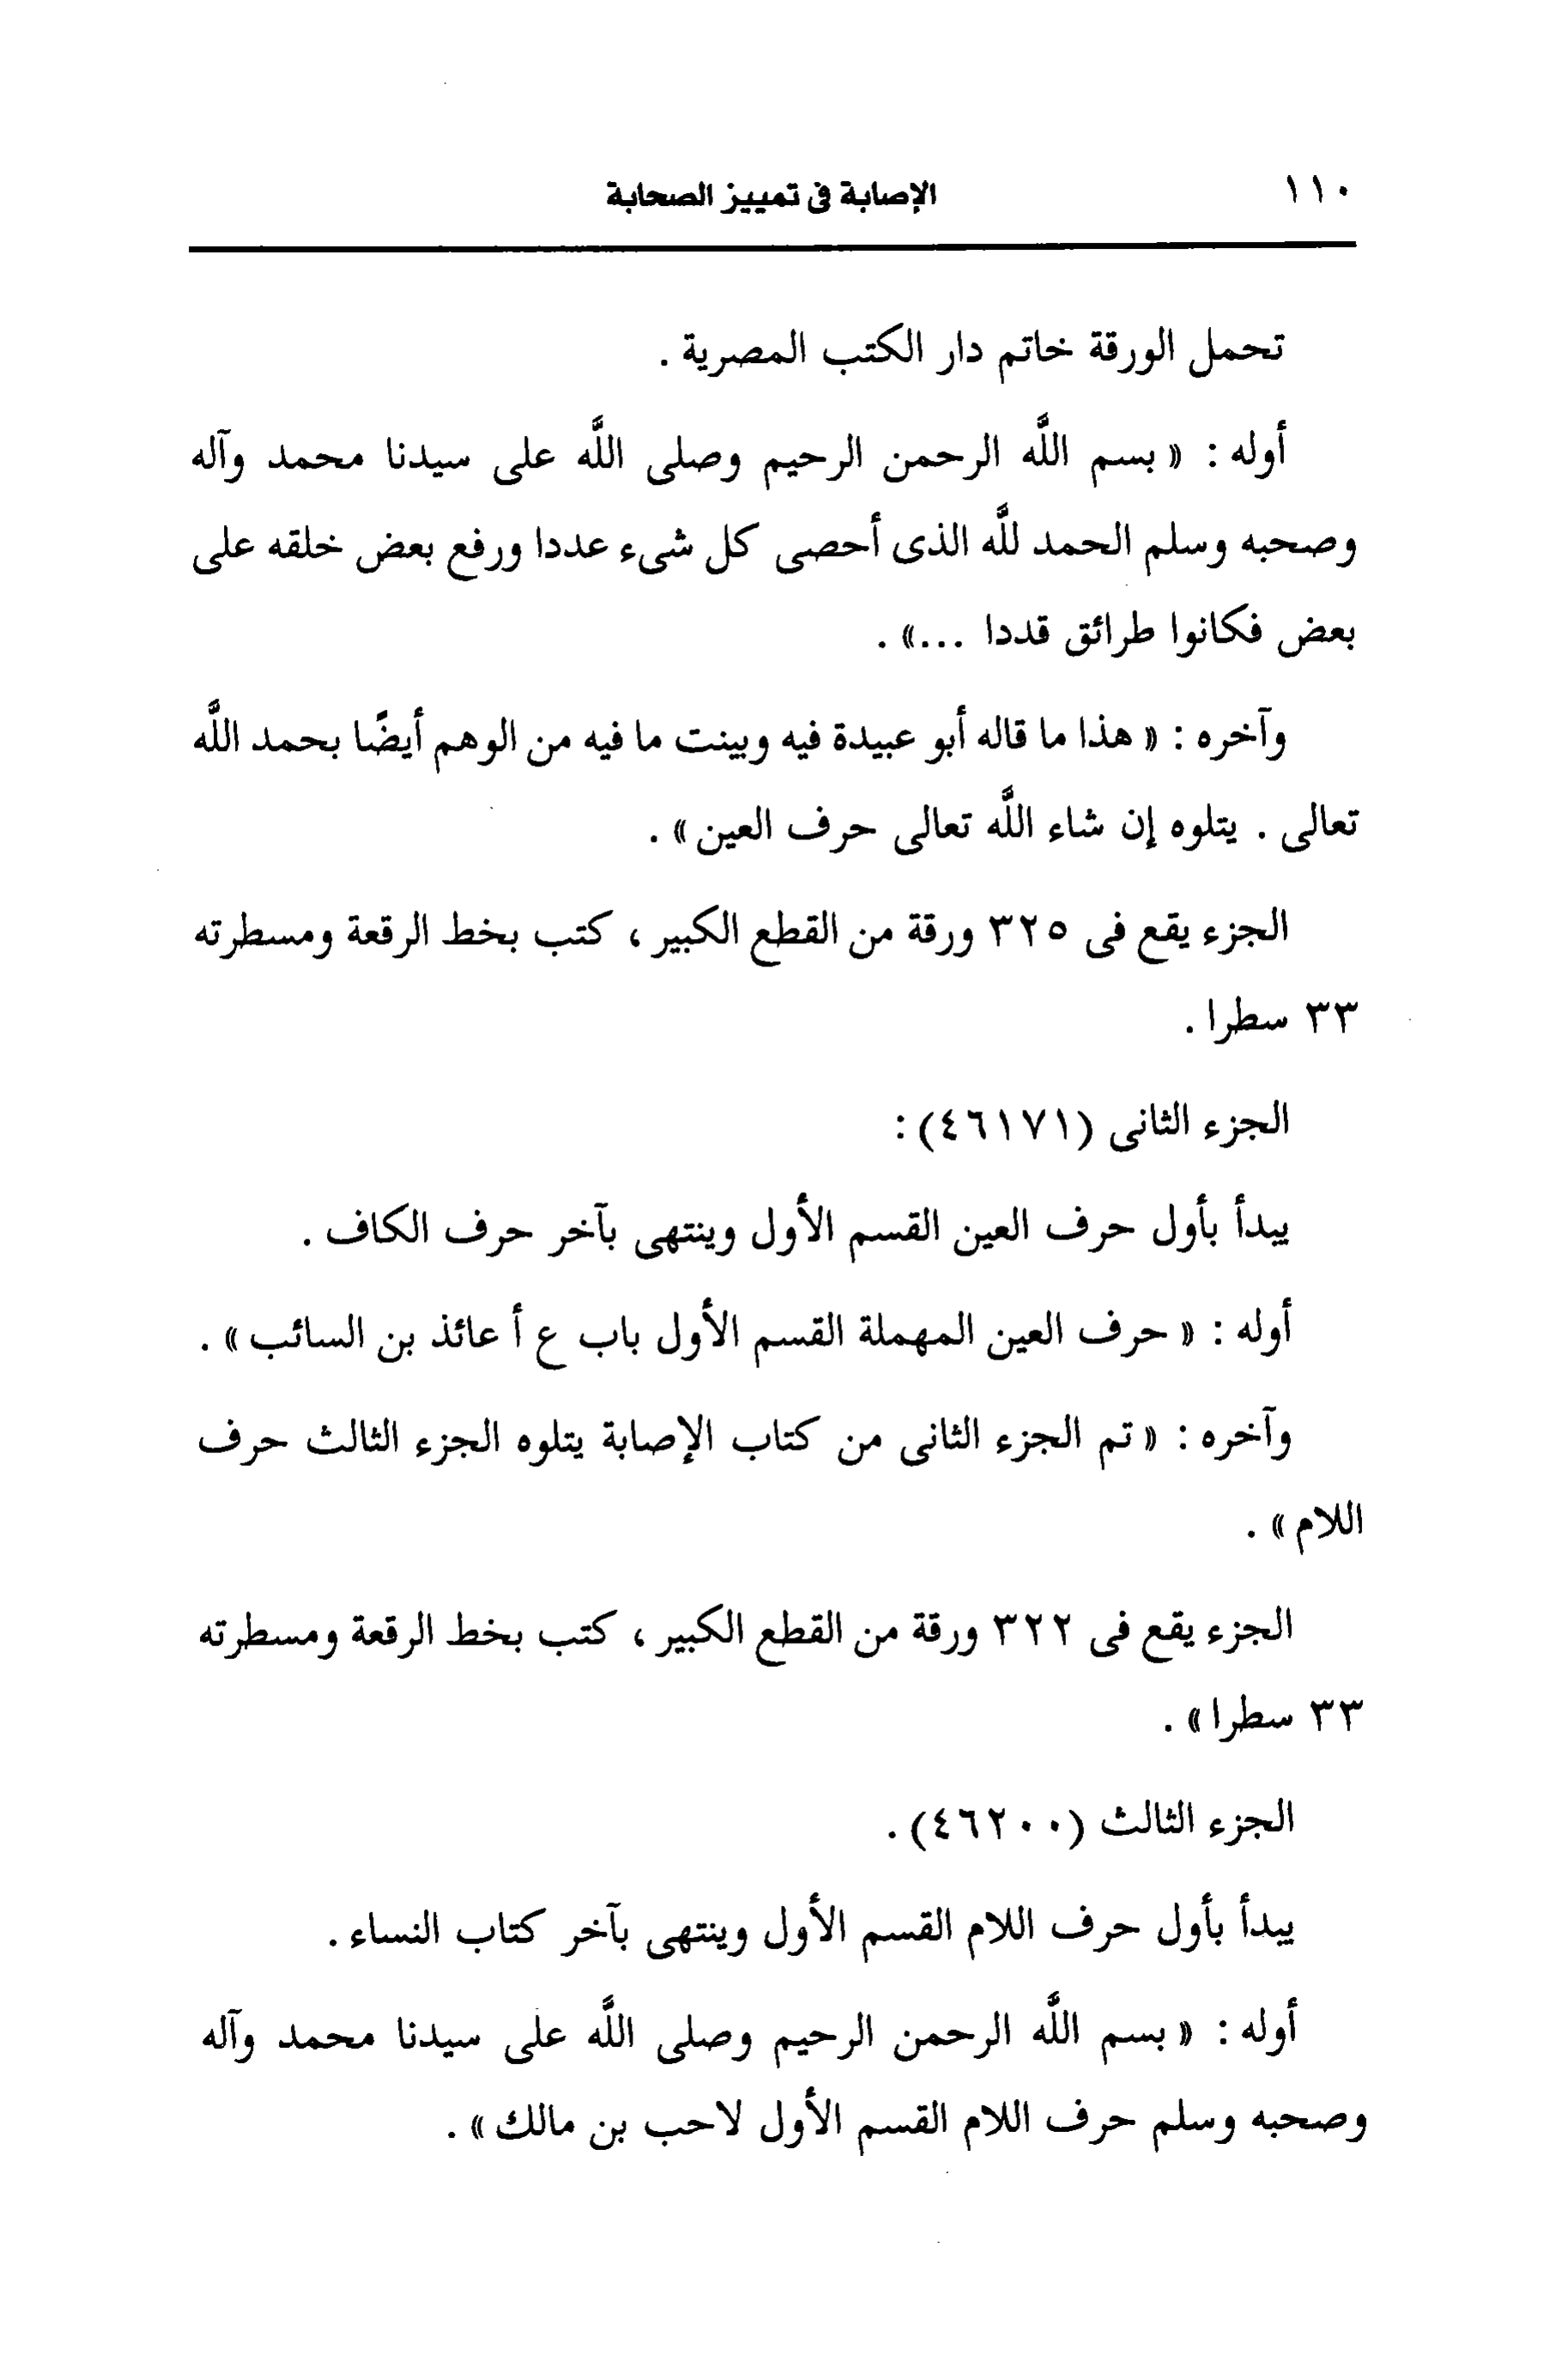 ١١٠
الإصابة فى تمييز الصحابة
تحمل الورقة خاتم دار الكتب المصرية .
أوله : « بسم اللَّه الرحمن الرحيم وصلى اللَّه على سيدنا محمد وآله
وصحبه وسلم الحمد للَّه الذى أحصى كل شىء عددا ورفع بعض خلقه على
بعض فكانوا طرائق قددا ...» .
وآخره : « هذا ما قاله أبو عبيدة فيه وبينت ما فيه من الوهم أيضًا بحمد اللَّه
تعالى . يتلوه إن شاء اللَّه تعالى حرف العين » .
الجزء يقع فى ٣٢٥ ورقة من القطع الكبير ، كتب بخط الرقعة ومسطرته
٣٣ سطرا .
الجزء الثانى (٤٦١٧١) :
يبدأ بأول حرف العين القسم الأول وينتهى بآخر حرف الكاف .
أوله : « حرف العين المهملة القسم الأول باب ع أ عائذ بن السائب » .
وآخره : « تم الجزء الثانى من كتاب الإصابة يتلوه الجزء الثالث حرف
اللام » .
الجزء يقع فى ٣٢٢ ورقة من القطع الكبير ، كتب بخط الرقعة ومسطرته
٣٣ سطرا » .
الجزء الثالث (٤٦٢٠٠) .
يبدأ بأول حرف اللام القسم الأول وينتهى بآخر كتاب النساء .
أوله : « بسم اللَّه الرحمن الرحيم وصلى اللَّه على سيدنا محمد وآله
وصحبه وسلم حرف اللام القسم الأول لاحب بن مالك » .